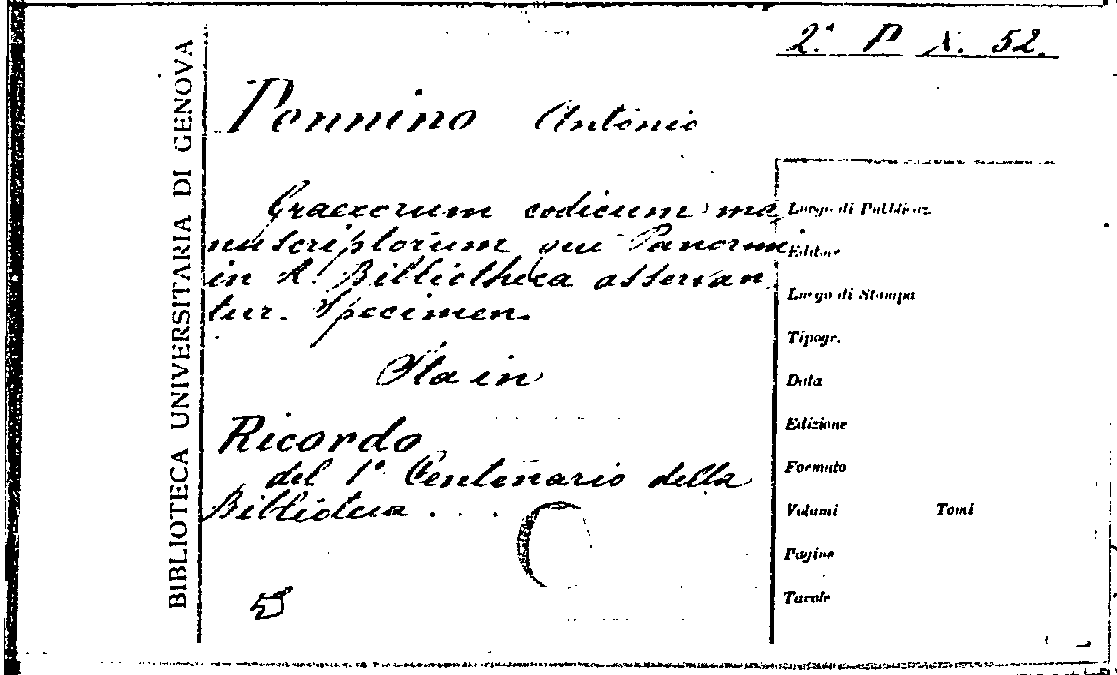 2.ª P X. 52.
BIBLIOTECA UNIVERSITARIA DI GENOVA
Pennino Antonio
Graecorum codicum ma
nuscriptorum qui Panormi
in R. Bibliotheca asservan
tur. Specimen.
Sta in
Ricordo
del 1º Centenario della
Biblioteca . . . .
Luogo di Pubblicaz.
Editore
Luogo di Stampa
Tipogr.
Data
Edizione
Formato
Volumi Tomi
Pagine
Tavole